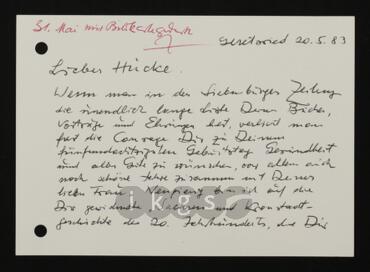 31. Mai mit Brief
Geretsried 20.5.83
Lieber Hücke.
Wenn man in der Siebenbürger Zeitung
die unendlich lange Liste Deiner Bücher,
Vorträge und Ehrungen liest, verliert man
fast die Courage Dir zu Deinem
fünfundachtzigsten Geburtstag Gesundheit
und alles Gute zu wünschen, vor allem auch
noch schöne Jahre zusammen mit Deiner
lieben Frau. Neugierig bin ich auf die
Dir gewidmete und Kronstadt-
geschichte des 20. Jahrhunderts, die Dir
ikgs